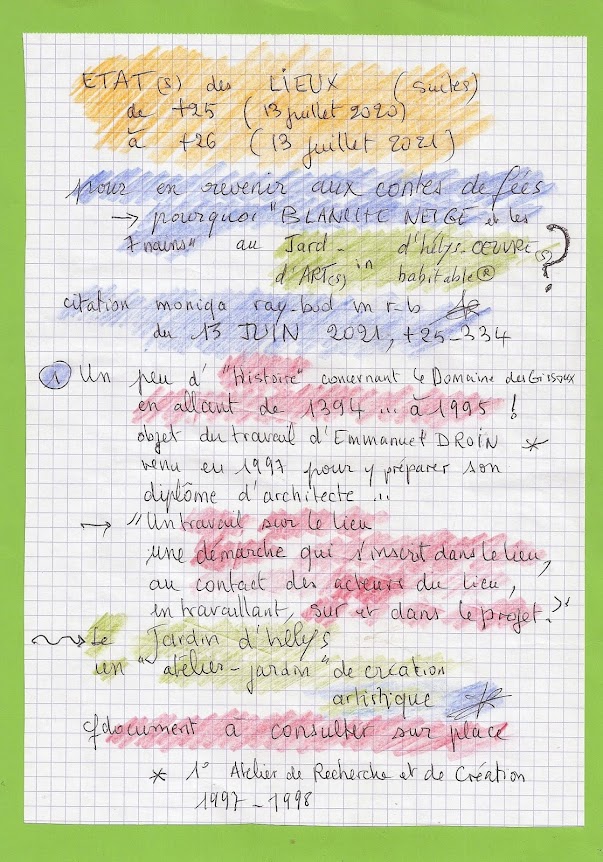 ETAT(s) des LIEUX (suites)
de +25 (13 juillet 2020)
à +26 (13 juillet 2021)
pour en revenir aux contes de fées
→ pourquoi "BLANCHE NEIGE et les
7 nains" au Jard- d'hélys-OEUVRE(s)
d'ART(s) in habitable® ?
citation moniqa ray-bod in r-b
du 13 JUIN 2021, +25-334
1 Un peu d'"Histoire" concernant le Domaine des Gissoux
en allant de 1394 ... à 1995 !
objet du travail d'Emmanuel DROIN *
venu en 1997 pour y préparer son
diplôme d'architecte ...
→ "Un travail sur le lieu
une démarche qui s'inscrit dans le lieu,
au contact des acteurs du lieu,
en travaillant, sur et dans le projet."
Le Jardin d'hélys
un "atelier-jardin" de création
artistique
cf document à consulter sur place
* 1° Atelier de Recherche et de Création
1997-1998